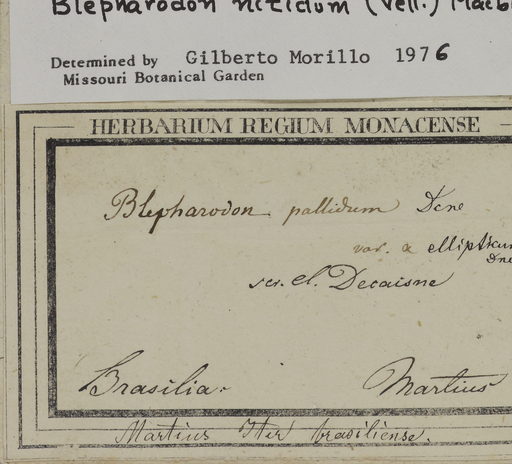 Blepharodon nitidum (Vell.) Macb
Determined by Gilberto Morillo 1976
Missouri Botanical Garden
HERBARIUM REGIUM MONACENSE
Blepharodon pallidum Dcne
var. α ellipticum
Dne
scr. cl. Decaisne
Brasilia. Martius
Martius Iter brasiliense.